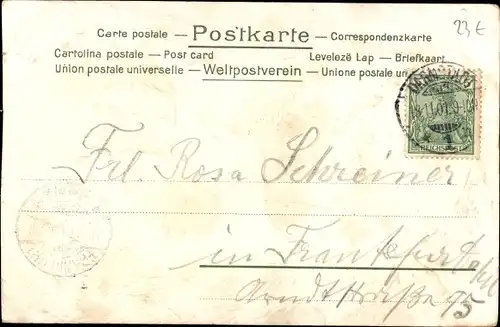 23 €
Carte postale — Postkarte — Correspondenzkarte
Cartolina postale — Post card Levelezö Lap — Briefkaart
Union postale universelle — Weltpostverein — Unione postale un
11.01.9-
Frl. Rosa Schreiner
in Frankfurt a/M
Arndtstraße 75